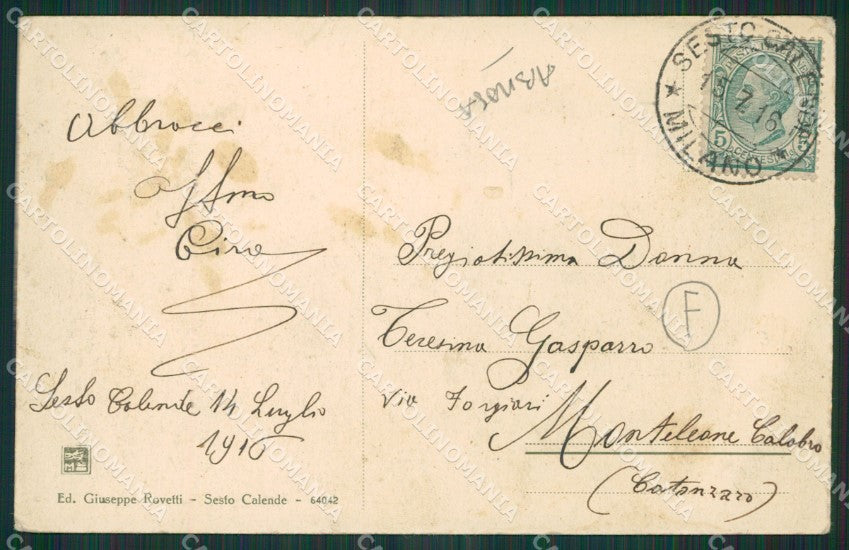 Abbracci
Aff.mo
Ciro
Sesto Calende 14 Luglio
1916
Ed. Giuseppe Rovetti - Sesto Calende - 64042
SESTO CALENDE
7.16
MILANO
5
Pregiatissima Donna
Teresina Gasparro
F
Via Forgiari
Monteleone Calabro
(Catanzaro)
CARTOLINOMANIA